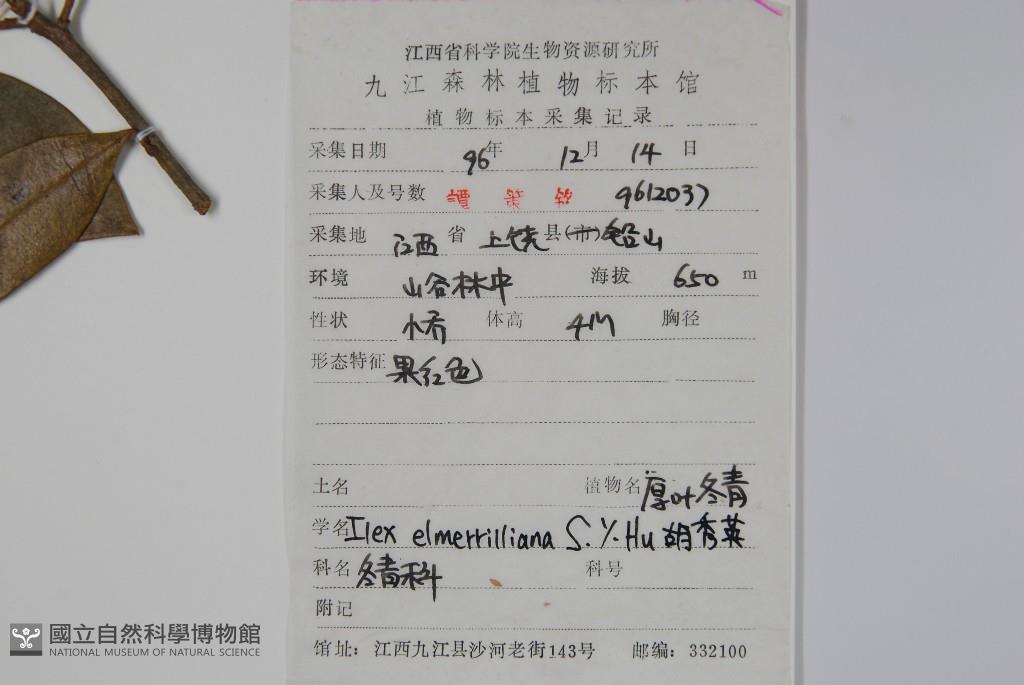 江西省科学院生物资源研究所
九江森林植物标本馆
植物标本采集记录
采集日期 96年 12月 14日
采集人及号数 譚策铭 9612037
采集地 江西省 上饶县(市)铅山
环境 山谷林中 海拔 650 m
性状 小乔 体高 4M 胸径
形态特征 果红色
土名 植物名 厚叶冬青
学名 Ilex elmerrilliana S.Y.Hu 胡秀英
科名 冬青科 科号
附记
馆址：江西九江县沙河老街143号 邮编：332100
國立自然科學博物館
NATIONAL MUSEUM OF NATURAL SCIENCE